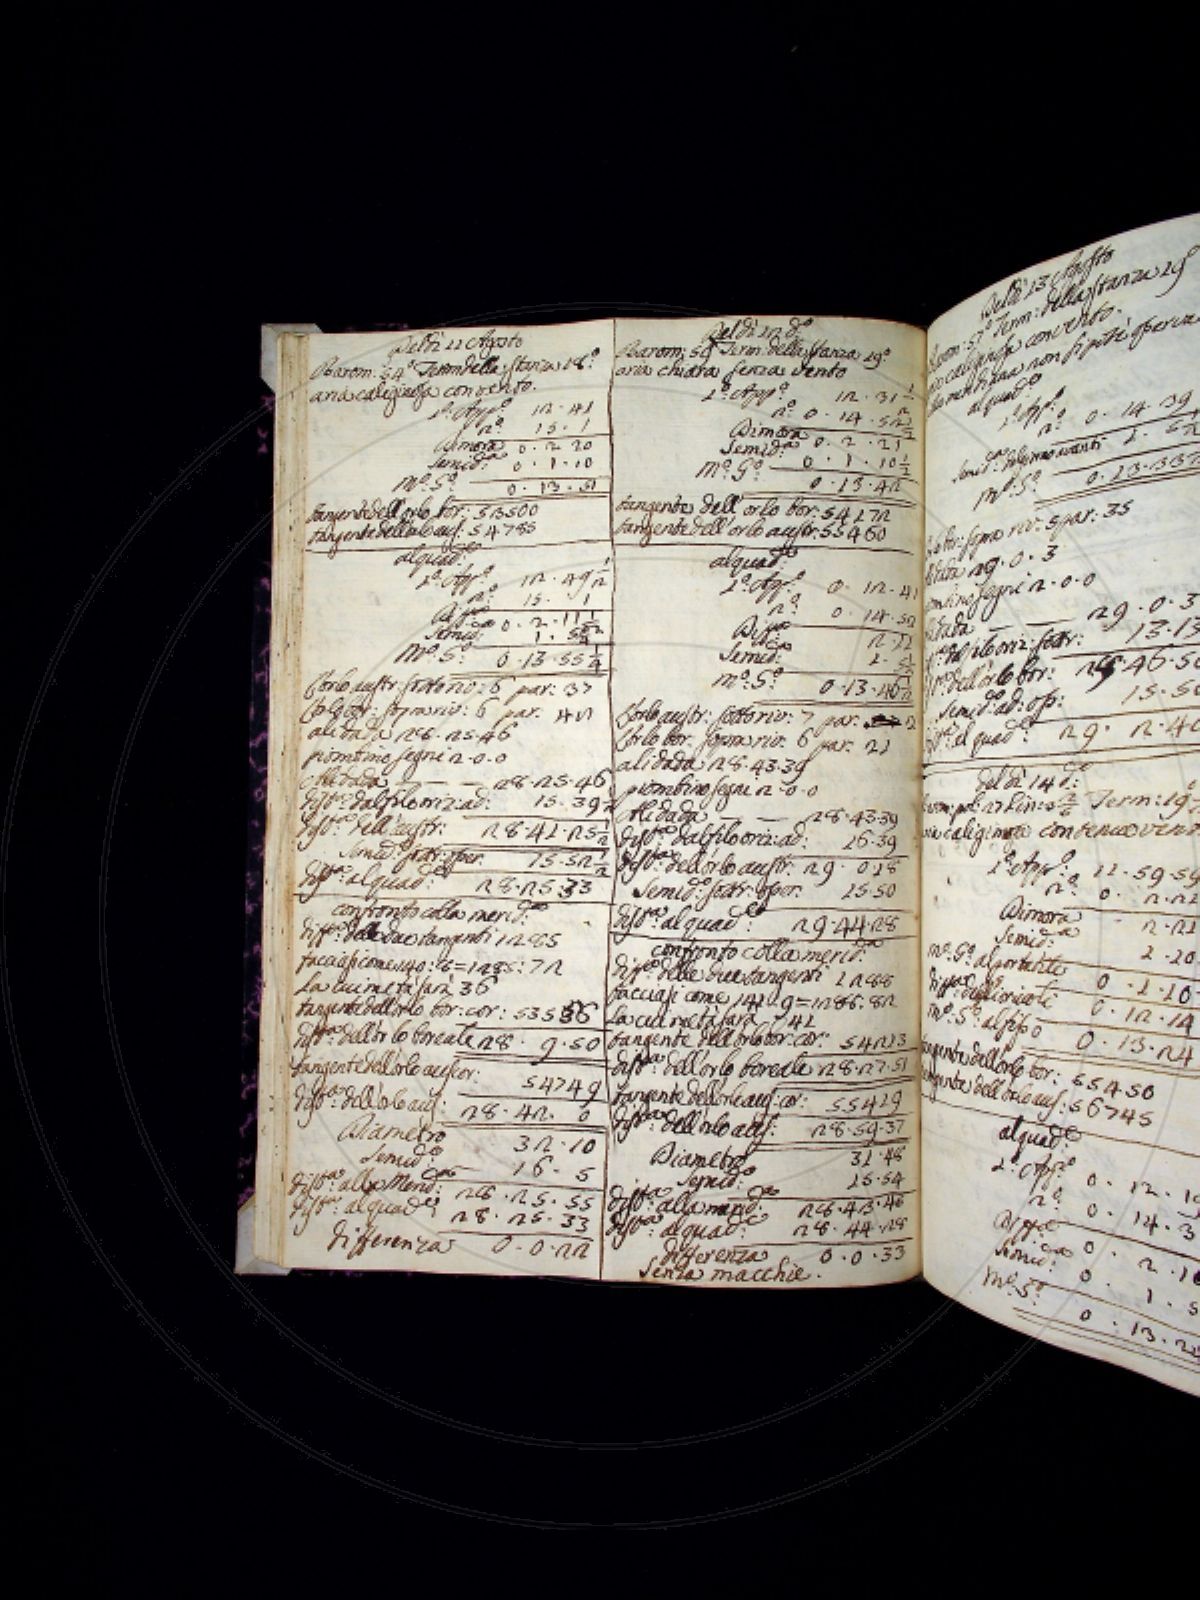 Del dì 11 Agosto
Barom: 54° Term: della stanza 18°
aria caliginosa con vento.
1° App° 12 · 41
2° 15 · 1
Dimora 0 · 2 20
Semid:ª 0 · 1 · 10
M° S° 0 · 13 · 51
tangente dell'orlo bor: 53500
tangente dell'orlo aus: 54785
al quad:
1° App° 12 · 49 1/2
2° 15 · 1
Diff:ª 0 · 2 · 11 1/2
Semid:
M° S° 0 · 13 · 55 1/4
L'orlo austr: sotto riv: 6 par: 37
L'orlo bor: sopra riv: 6 par: 42
alidada 28 · 25 · 46
piombino segni 2 · 0 · 0
Alidada 28 · 25 · 46
dist:ª dal filo oriz: ad: 15 · 39
dist:ª dell'austr: 28 · 41 · 25 1/2
Semid: sottr: 15 · 52 1/2
dist:ª al quad: 28 · 25 · 33
confronto colla merid:ª
diff:ª delle due tangenti 1285
facciasi come 140 : 8 = 1285 : 72
la cui metà sarà 36
tangente dell'orlo bor: cor: 53536
dist:ª dell'orlo boreale 28 · 9 · 50
tangente dell'orlo aus: cor: 54749
dist:ª dell'orlo aus: 28 · 42 · 0
Diametro 32 · 10
Semid: 16 · 5
dist:ª alla Merid: 28 · 25 · 55
dist:ª al quad: 28 · 25 · 33
differenza 0 · 0 · 22
Del dì 12 d°
Barom: Term: della stanza 19°
aria chiara senza vento
1° App° 12 · 31 1/2
2° 0 · 14 · 52 1/2
Dimora 0 · 2 · 21
Semid:ª 0 · 1 · 10 1/2
M° S° 0 · 13 · 42
tangente dell'orlo bor: 54172
tangente dell'orlo austr: 55460
al quad:
1° App° 0 · 12 · 41
2° 0 · 14 · 52
Diff:ª 2 · 11
Semid: 1 · 5 1/2
M° S° 0 · 13 · 46 1/2
L'orlo austr: sotto riv: 7 par: 2
L'orlo bor: sopra riv: 6 par: 21
alidada 28 · 43 · 39
piombino segni 2 · 0 · 0
Alidada 28 · 43 · 39
dist:ª dal filo oriz: ad: 16 · 39
dist:ª dell'orlo austr: 29 · 0 · 18
Semid: sottr: 15 · 50
dist:ª al quad: 29 · 44 · 28
confronto colla merid:ª
diff:ª delle due tangenti 1288
facciasi come 141 · 9 = 1288 · 82
la cui metà sarà 41
tangente dell'orlo bor: cor: 54213
dist:ª dell'orlo boreale 28 · 27 · 51
tangente dell'orlo aus: cor: 55419
dist:ª dell'orlo aus: 28 · 59 · 37
Diametro 31 · 48
Semid: 15 · 54
dist:ª alla merid:ª
dist:ª al quad: 28 · 44 · 28
differenza 0 · 0 · 33
Senza macchie.
Del dì 13 Agosto
Term: della stanza 19
caliginosa con vento.
la meridiana non si potè
al quad:
1° App° 0 · 14 · 39
2°
M° S°
sopra riv: 5 par: 35
29 · 0 · 3
piombino segni 2 · 0 · 0
29 · 0 · 3
13 · 13
dell'orlo bor: 28 · 46 · 50
Semid: ad:
al quad: 29 · 2 · 4
del dì 14 d°:
Term: 19
caliginosa con
1° App° 11 · 59 · 59
2° 0 · 2 · 21
Dimora 2 · 21
Semid: 1 · 10
M° S° al portatile 0 · 1 · 10
diff:ª degli oriuoli 0 · 12 · 14
M° S° al fisso 0 · 13 · 24
tangente dell'orlo bor: 55450
tangente dell'orlo aus: 56745
al quad:
1° App° 0 · 12 · 1
2° 0 · 14 · 3
Diff:ª 0 · 2 · 1
Semid: 0 · 1 · 5
M° S° 0 · 13 · 2